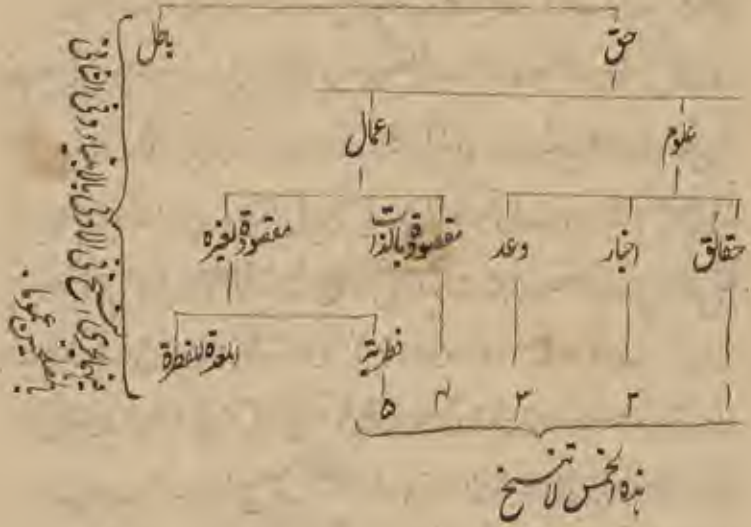 حق
باطل
علوم
اعمال
حقائق
اخبار
وعد
مقصودة بالذات
مقصودة لغيره
فطریة
المعدة للفطرة
۱
۲
۳
۴
۵
ہذہ الخمس لا تنسخ